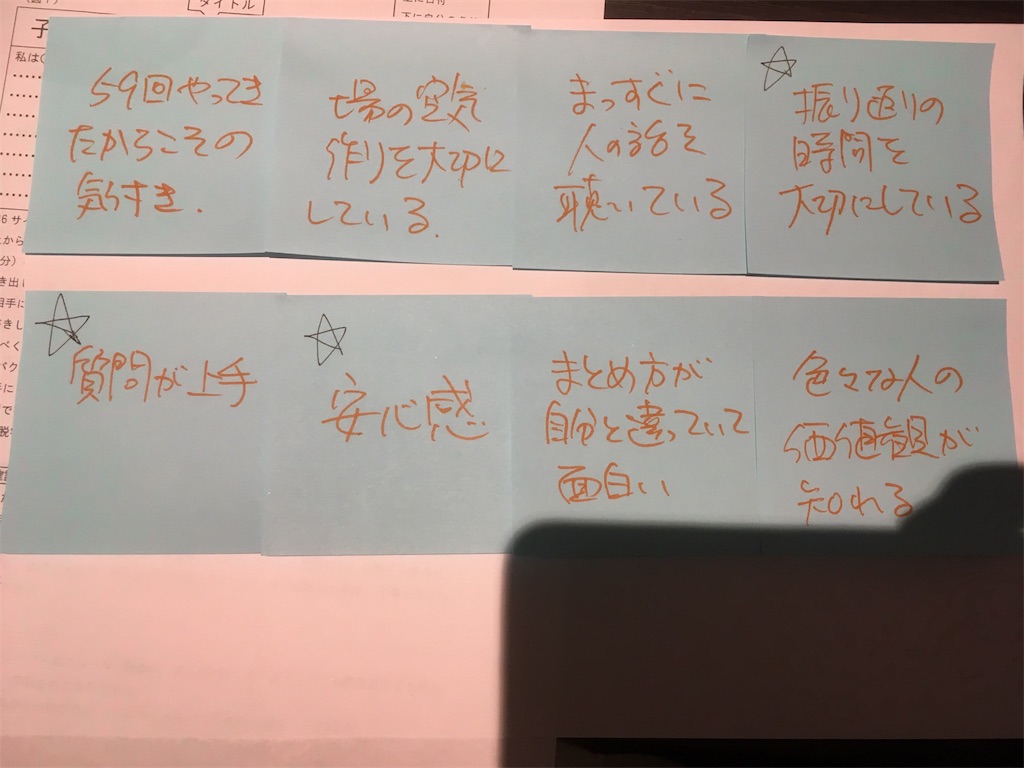 タイトル
子
私は(
59回やってき
たからこその
気づき.
場の空気
作りを大切に
している.
まっすぐに
人の話を
聴いている
振り返りの
時間を
大切にしている
質問が上手
安心感
まとめ方が
自分と違っていて
面白い
色々な人の
価値観が
知れる